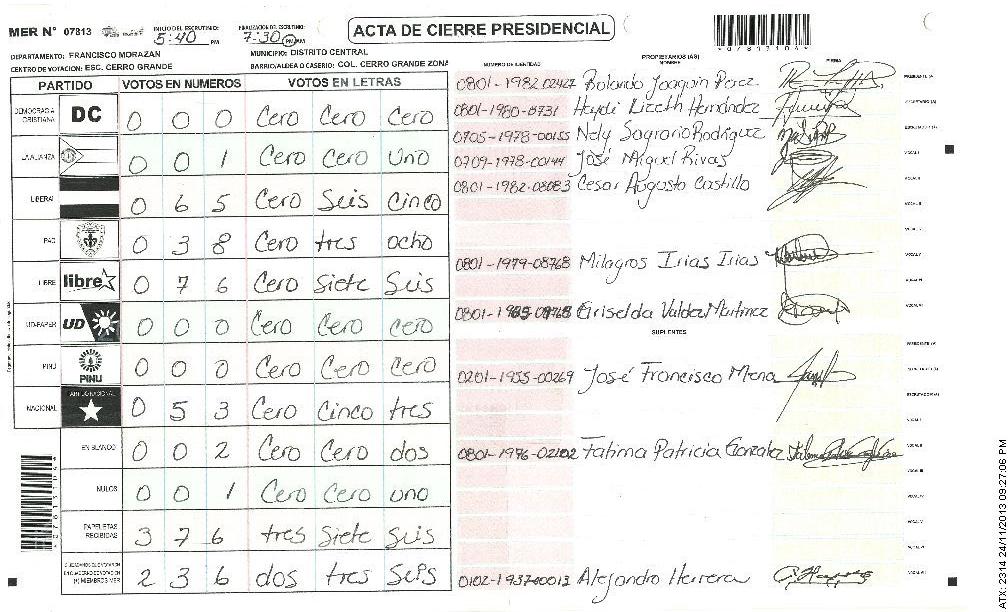 MER N° 07813
INICIO DEL ESCRUTINIO: 5:40 PM
FINALIZACION DEL ESCRUTINIO: 7:30 PM
ACTA DE CIERRE PRESIDENCIAL
DEPARTAMENTO: FRANCISCO MORAZAN
MUNICIPIO: DISTRITO CENTRAL
CENTRO DE VOTACION: ESC. CERRO GRANDE
BARRIO/ALDEA O CASERIO: COL. CERRO GRANDE ZONA
PARTIDO VOTOS EN NUMEROS VOTOS EN LETRAS
DEMOCRACIA CRISTIANA DC 0 0 0 Cero Cero Cero
LA ALIANZA 0 0 1 Cero Cero Uno
LIBERAL 0 6 5 Cero Seis Cinco
PAC 0 3 8 Cero tres ocho
LIBRE libre 0 7 6 Cero Siete Seis
UD-FAPER UD 0 0 0 Cero Cero cero
PINU PINU 0 0 0 Cero Cero Cero
NACIONAL PARTIDO NACIONAL 0 5 3 Cero Cinco tres
EN BLANCO 0 0 2 Cero Cero dos
NULOS 0 0 1 Cero Cero uno
PAPELETAS RECIBIDAS 3 7 6 tres Siete Seis
2 3 6 dos tres Seis
NUMERO DE IDENTIDAD
PROPIETARIOS (AS)
NOMBRE
FIRMA
0801-1982-02427 Rolando Joaquin Perez
0801-1980-0731 Haydi Lizeth Hernández
0705-1978-00155 Nely Sagrario Rodriguez
0709-1978-00144 José Miguel Rivas
0801-1982-08083 Cesar Augusto Castillo
0801-1979-08768 Milagros Irias Irias
Griselda Valdez Martinez
SUPLENTES
0201-1955-00269 José Francisco Mena
0801-1996-02102 Fatima Patricia Gonzalez
0102-1937-00013 Alejandro Herrera
ATX: 2314 24/11/2013 09:27:06 PM